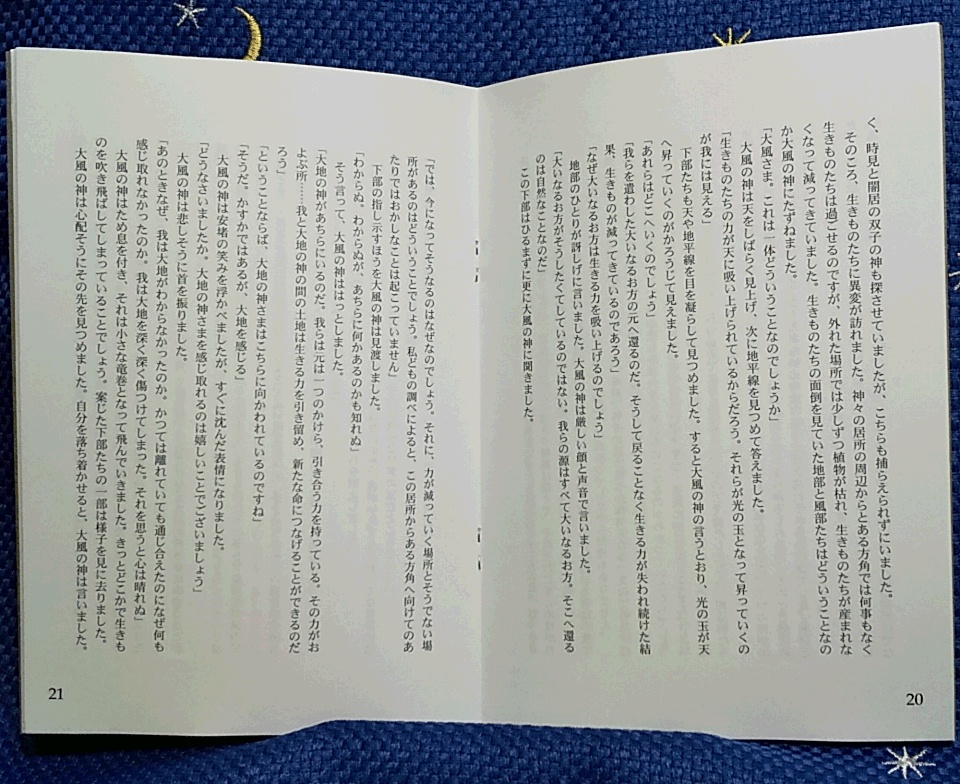 く、時見と闇居の双子の神も探させていましたが、こちらも捕らえられずにいました。
そのころ、生きものたちに異変が訪れました。神々の居所の周辺からとある方角では何事もなく
生きものたちは過ごせるのですが、外れた場所では少しずつ植物が枯れ、生きものたちが産まれな
くなって減ってきていました。生きものたちの面倒を見ていた地部と風部たちはどういうことなの
か大風の神にたずねました。
「大風さま。これは一体どういうことなのでしょうか」
大風の神は天をしばらく見上げ、次に地平線を見つめて答えました。
「生きものたちの力が天に吸い上げられているからだろう。それらが光の玉となって昇っていくの
が我には見える」
下部たちも天や地平線を目を凝らして見つめました。すると大風の神の言うとおり、光の玉が天
へ昇っていくのがかろうじて見えました。
「あれらはどこへいくのでしょう」
「我らを遣わした大いなるお方の元へ還るのだ。そうして戻ることなく生きる力が失われ続けた結
果、生きものが減ってきているのであろう」
「なぜ大いなるお方は生きる力を吸い上げるのでしょう」
地部のひとりが訝しげに言いました。大風の神は厳しい顔と声音で言いました。
「大いなるお方がそうしたくてしているのではない。我らの源はすべて大いなるお方。そこへ還る
のは自然なことなのだ」
この下部はひるまずに更に大風の神に聞きました。
20
「では、今になってそうなるのはなぜなのでしょう。それに、力が減っていく場所とそうでない場
所があるのはどういうことでしょう。私どもの調べによると、この居所からある方角へ向けてのあ
たりではおかしなことは起こっていません」
下部の指し示すほうを大風の神は見渡しました。
「わからぬ。わからぬが、あちらに何かあるのかも知れぬ」
そう言って、大風の神ははっとしました。
「大地の神があちらにいるのだ。我らは元は一つのかけら、引き合う力を持っている。その力がお
よぶ所……我と大地の神の間の土地は生きる力を引き留め、新たな命につなげることができるのだ
ろう」
「ということならば、大地の神さまはこちらに向かわれているのですね」
「そうだ。かすかではあるが、大地を感じる」
大風の神は安堵の笑みを浮かべましたが、すぐに沈んだ表情になりました。
「どうなさいましたか。大地の神さまを感じ取れるのは嬉しいことでございましょう」
大風の神は悲しそうに首を振りました。
「あのときなぜ、我は大地がわからなかったのか。かつては離れていても通じ合えたのになぜ何も
感じ取れなかったのか。我は大地を深く深く傷つけてしまった。それを思うと心は晴れぬ」
大風の神はため息を付き、それは小さな竜巻となって飛んでいきました。きっとどこかで生きも
のを吹き飛ばしてしまっていることでしょう。案じた下部たちの一部は様子を見に去りました。
大風の神は心配そうにその先を見つめました。自分を落ち着かせると、大風の神は言いました。
21